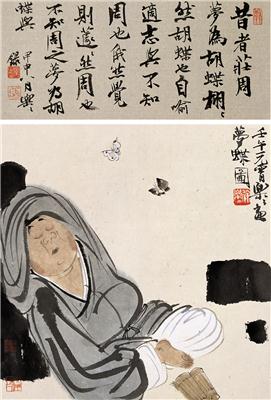 昔者莊周
夢為胡蝶栩栩
然胡蝶也自喻
適志與不知
周也俄然覺
則蘧然周也
不知周之夢為胡
蝶與
甲申八月樂
錄
壬午六月曾樂畫
夢蝶圖